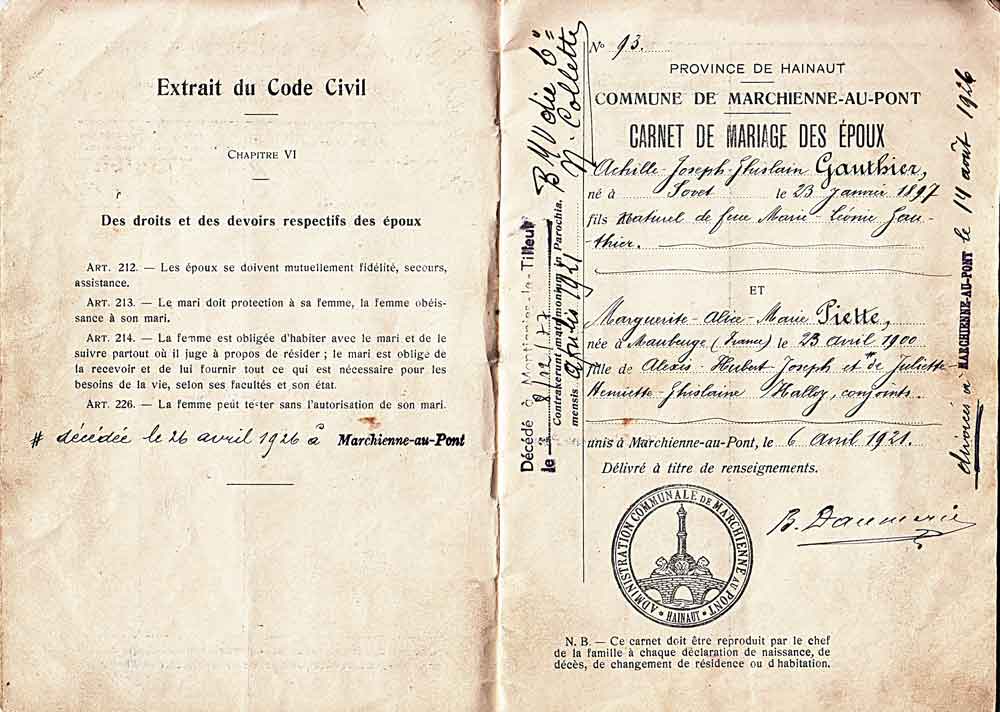 Extrait du Code Civil
CHAPITRE VI
Des droits et des devoirs respectifs des époux
ART. 212. — Les époux se doivent mutuellement fidélité, secours,
assistance.
ART. 213. — Le mari doit protection à sa femme, la femme obéis-
sance à son mari.
ART. 214. — La femme est obligée d'habiter avec le mari et de le
suivre partout où il juge à propos de résider ; le mari est obligé de
la recevoir et de lui fournir tout ce qui est nécessaire pour les
besoins de la vie, selon ses facultés et son état.
ART. 226. — La femme peut tester sans l'autorisation de son mari.
# décédée le 26 avril 1926 à Marchienne-au-Pont
Décédé à Montignies-le-Tilleul
le 8/12/77
Contraxerunt matrimonium in Parochia
B M V die 6a
mensis aprilis 1921 N. Collette
No 93.
PROVINCE DE HAINAUT
COMMUNE DE MARCHIENNE-AU-PONT
CARNET DE MARIAGE DES ÉPOUX
Achille-Joseph-Ghislain Gauthier,
né à Sovet le 23 janvier 1897
fils naturel de feue Marie Léonie Gau-
thier.
ET
Marguerite-Alice-Marie Piette,
née à Maubeuge (France) le 23 avril 1900
fille de Alexis-Hubert-Joseph et # de Juliette-
Henriette-Ghislaine Halloy, conjoints.
unis à Marchienne-au-Pont, le 6 avril 1921.
Délivré à titre de renseignements.
B. Daumerie
ADMINISTRATION COMMUNALE DE MARCHIENNE AU PONT
* HAINAUT *
N. B. — Ce carnet doit être reproduit par le chef
de la famille à chaque déclaration de naissance, de
décès, de changement de résidence ou d'habitation.
divorcés à MARCHIENNE-AU-PONT le 14 août 1926